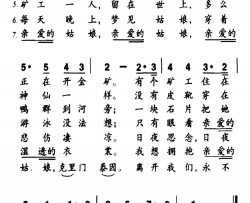 5. 矿工一人，留在世上，多么
6. 每天晚上，梦见姑娘，穿着
7. 亲爱的姑娘，亲爱的姑娘，亲爱的
5· 5 5·3 2 - 2·3 4 4 3·2
正在开金矿。有个矿工住在
神仙一样。没有皮靴穿在
鸭群到河旁；一块石片把她
游泳没法想；只有眼看亲爱的
悲伤凄凉。日夜思念，日夜
湿透的衣裳。我想拥抱亲爱的
姑娘，克里门泰因。离开我们，永不